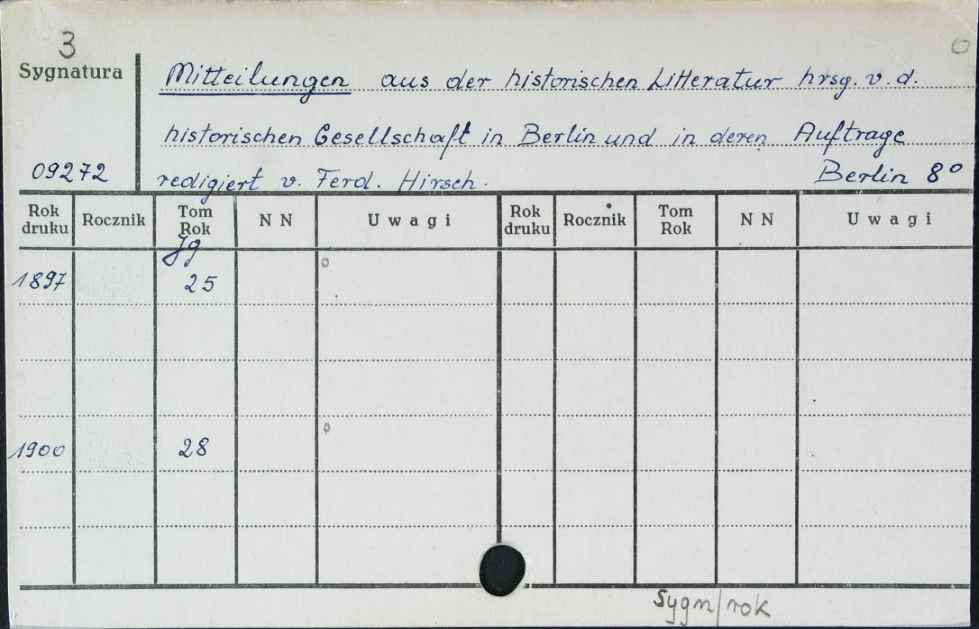 3
Sygnatura
Mitteilungen aus der historischen Litteratur hrsg. v. d.
historischen Gesellschaft in Berlin und in deren Auftrage
09272 redigiert v. Ferd. Hirsch. Berlin 8°
Rok druku Rocznik Tom Rok N N Uwagi Rok druku Rocznik Tom Rok N N Uwagi
Jg
1897 25
1900 28
Sygn/rok